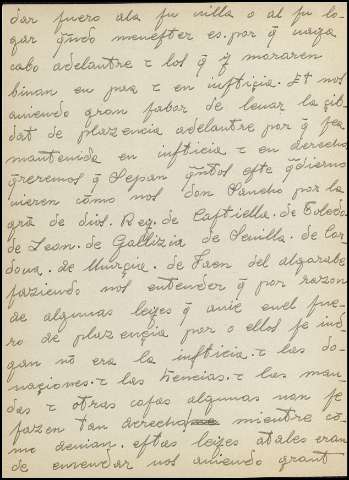 dar fuero ala fu villa o al fu lo-
gar q̃ndo menefter es. por q̃ vaya
cabo adelantre τ los q̃ y moraren
binan en paz τ en iuftiçia. Et nos
auiendo gran fabor de leuar la çib-
dat de plazencia adelantre por q̃ fea
mantenida en iufticia τ en derecho
q̃remos q̃ Sepan q̃ñtos efte q̃dierno
vieren cōmo nos don Sancho por la
grã de dios. Rey. de Caftiella. de Toledo
de Leon. de Gallizia de Seuilla. de Cor-
doua. de Murçia. de Jaen del algarabe
faziendo nos entender q̃ por razon
de algunas leyes q̃ auie enel fue-
ro de plazençia por o ellos fe iud
gan nō era la iufticia. τ las do-
naçiones. τ las herencias. τ las man-
das τ otras cofas algunas non fe
fazen tan derecha mientre cō-
mo deuian. eftas leyes atales eran
de enmendar nos auiendo grant